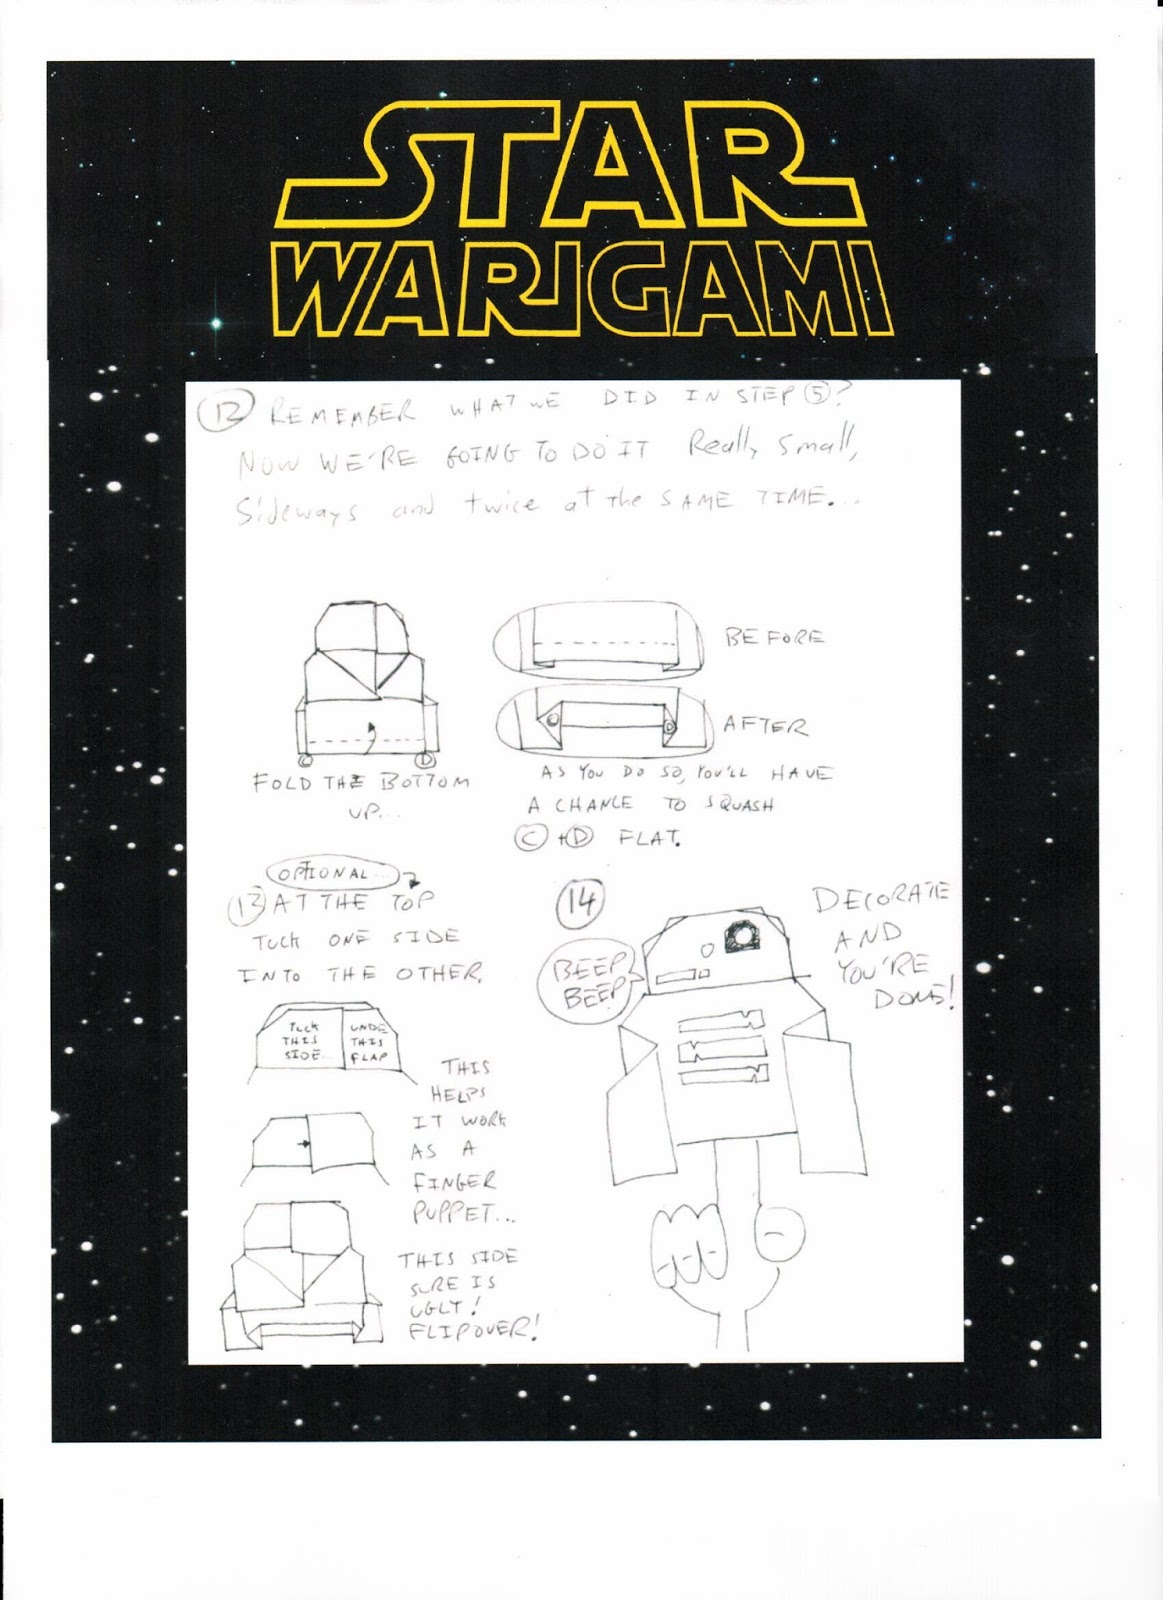 STAR
WARIGAMI
12 REMEMBER WHAT WE DID IN STEP 5?
NOW WE'RE GOING TO DO IT Really small,
Sideways and twice at the SAME TIME...
BEFORE
AFTER
C D
FOLD THE BOTTOM
UP...
AS YOU DO SO, YOU'LL HAVE
A CHANCE TO SQUASH
C + D FLAT.
OPTIONAL...
13 AT THE TOP
TUCK ONE SIDE
INTO THE OTHER.
TUCK
THIS
SIDE...
UNDE
THIS
FLAP
THIS
HELPS
IT WORK
AS A
FINGER
PUPPET...
THIS SIDE
SURE IS
UGLY!
FLIP OVER!
14
DECORATE
AND
YOU'RE
DONE!
BEEP
BEEP